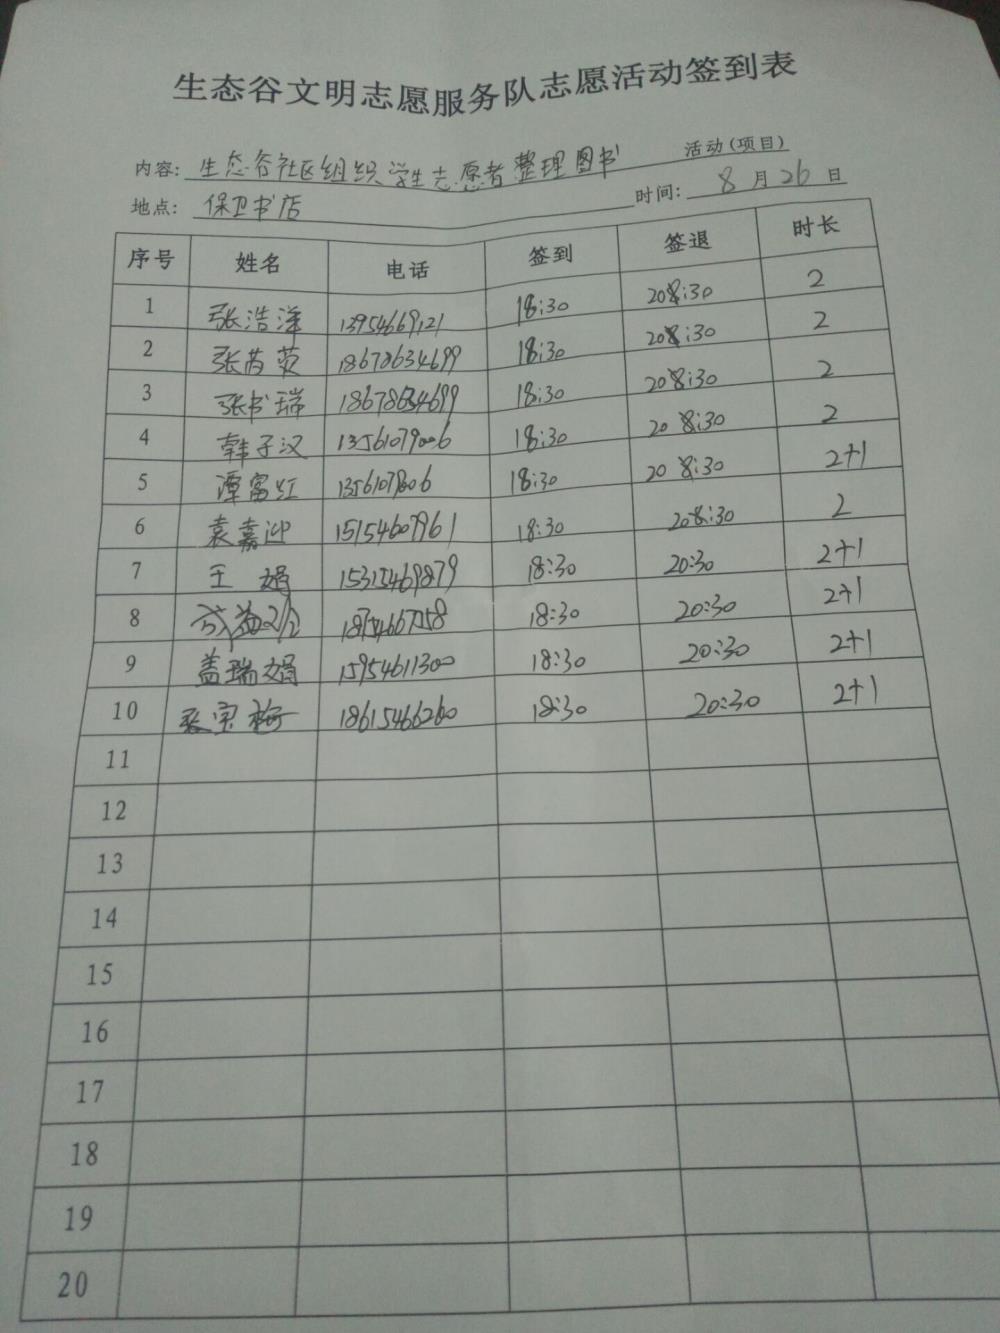 生态谷文明志愿服务队志愿活动签到表
内容: 生态谷社区组织学生志愿者整理图书 活动(项目)
地点: 保卫书店 时间: 8月26日
序号 姓名 电话 签到 签退 时长
1 张浩洋 13954669121 18:30 20:30 2
2 张芮萤 18678634699 18:30 20:30 2
3 张书瑞 18678634699 18:30 20:30 2
4 韩子汉 13561079006 18:30 20:30 2
5 谭富红 13561079006 18:30 20:30 2+1
6 袁嘉迎 15154607961 18:30 20:30 2
7 王娟 15315469879 18:30 20:30 2+1
8 18:30 20:30 2+1
9 盖瑞娟 15954611300 18:30 20:30 2+1
10 张宝梅 18615466260 18:30 20:30 2+1
11
12
13
14
15
16
17
18
19
20